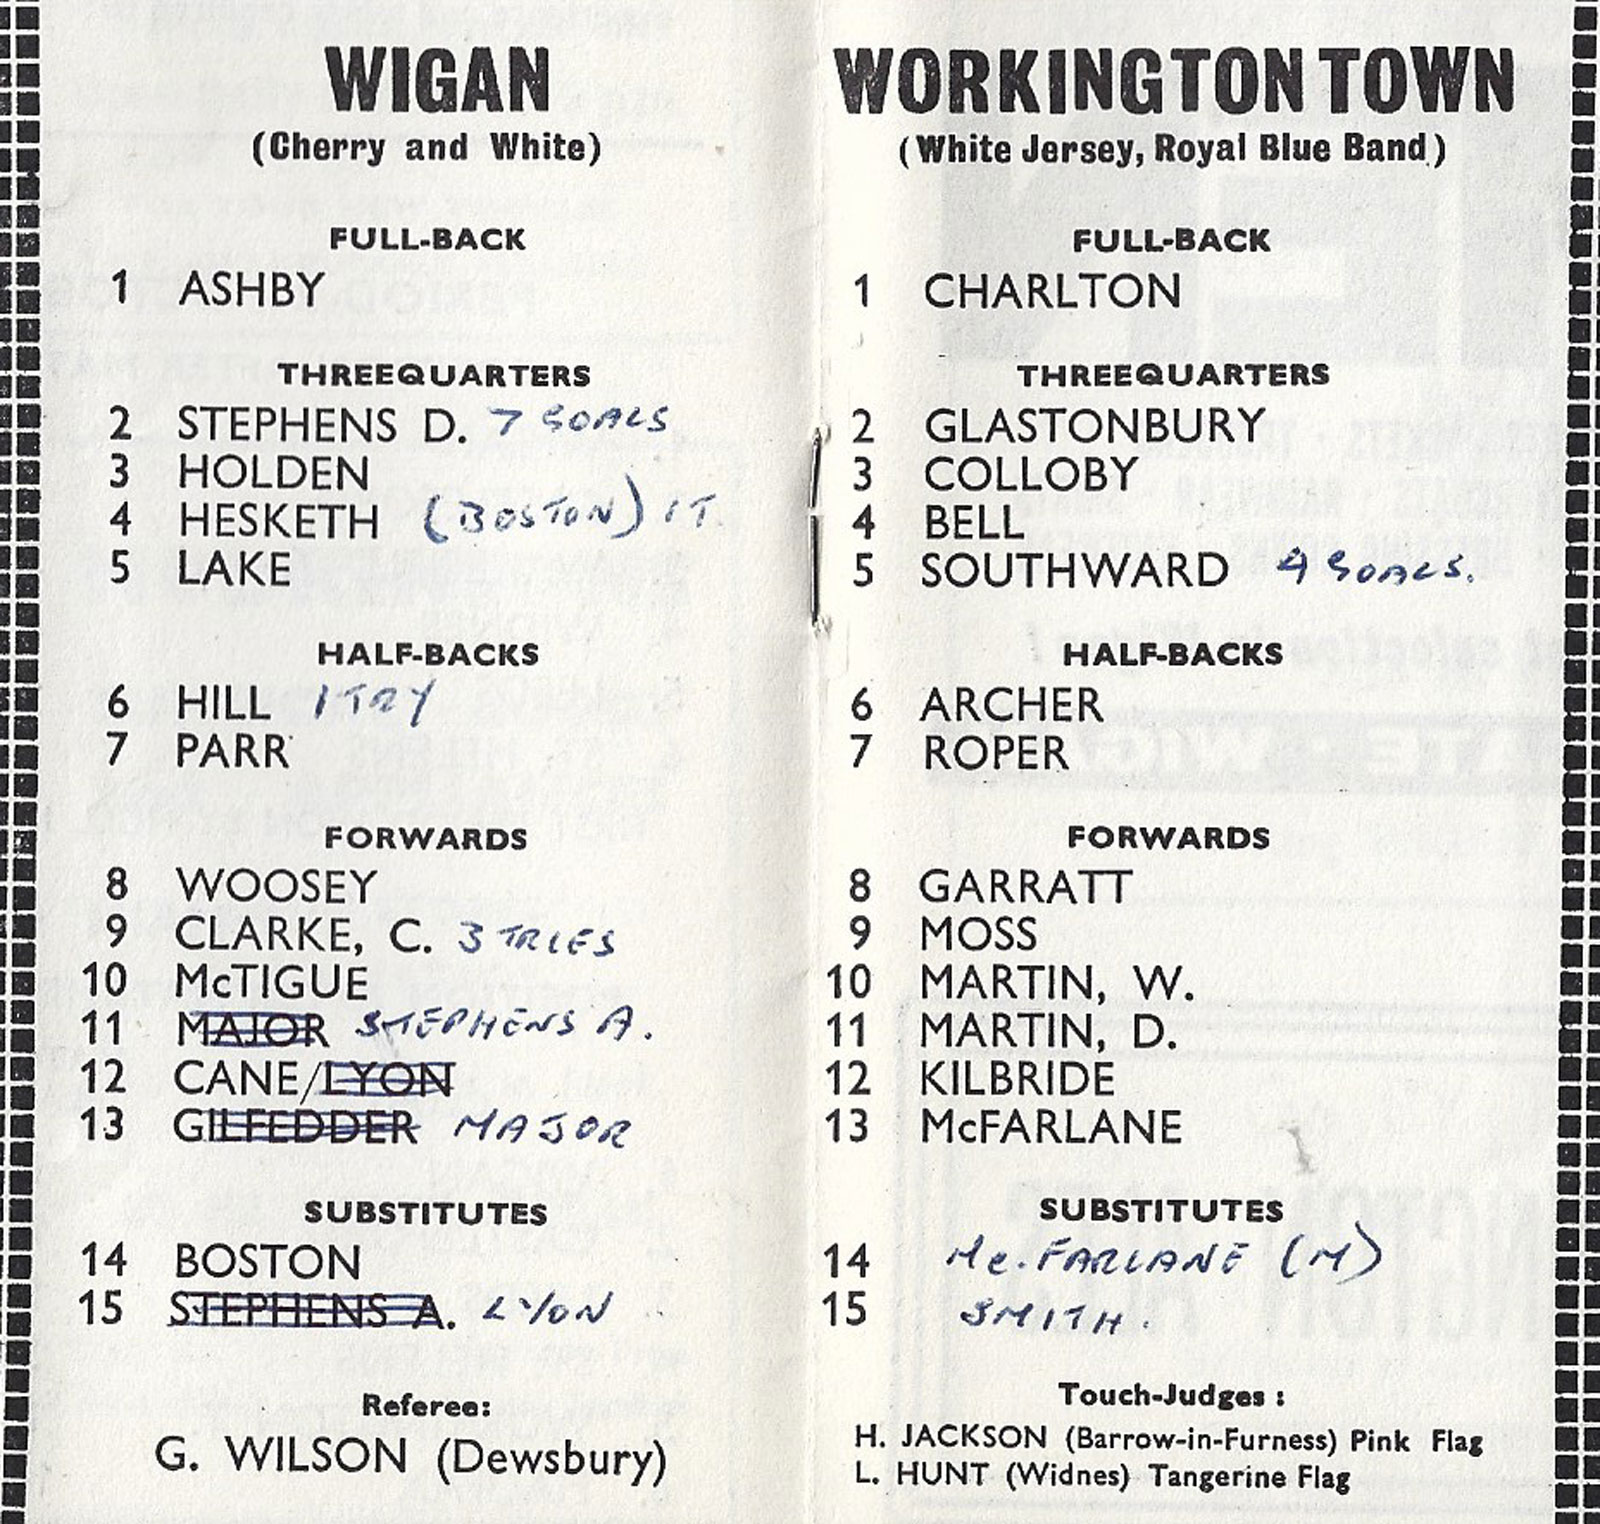 WIGAN
(Cherry and White)
FULL-BACK
1 ASHBY
THREEQUARTERS
2 STEPHENS D. 7 GOALS
3 HOLDEN
4 HESKETH (BOSTON) 1T.
5 LAKE
HALF-BACKS
6 HILL 1 TRY
7 PARR
FORWARDS
8 WOOSEY
9 CLARKE, C. 3 TRIES
10 McTIGUE
11 MAJOR STEPHENS A.
12 CANE/LYON
13 GILFEDDER MAJOR
SUBSTITUTES
14 BOSTON
15 STEPHENS A. LYON
Referee:
G. WILSON (Dewsbury)
WORKINGTON TOWN
(White Jersey, Royal Blue Band)
FULL-BACK
1 CHARLTON
THREEQUARTERS
2 GLASTONBURY
3 COLLOBY
4 BELL
5 SOUTHWARD 4 GOALS.
HALF-BACKS
6 ARCHER
7 ROPER
FORWARDS
8 GARRATT
9 MOSS
10 MARTIN, W.
11 MARTIN, D.
12 KILBRIDE
13 McFARLANE
SUBSTITUTES
14 Mc.FARLANE (M)
15 SMITH.
Touch-Judges :
H. JACKSON (Barrow-in-Furness) Pink Flag
L. HUNT (Widnes) Tangerine Flag